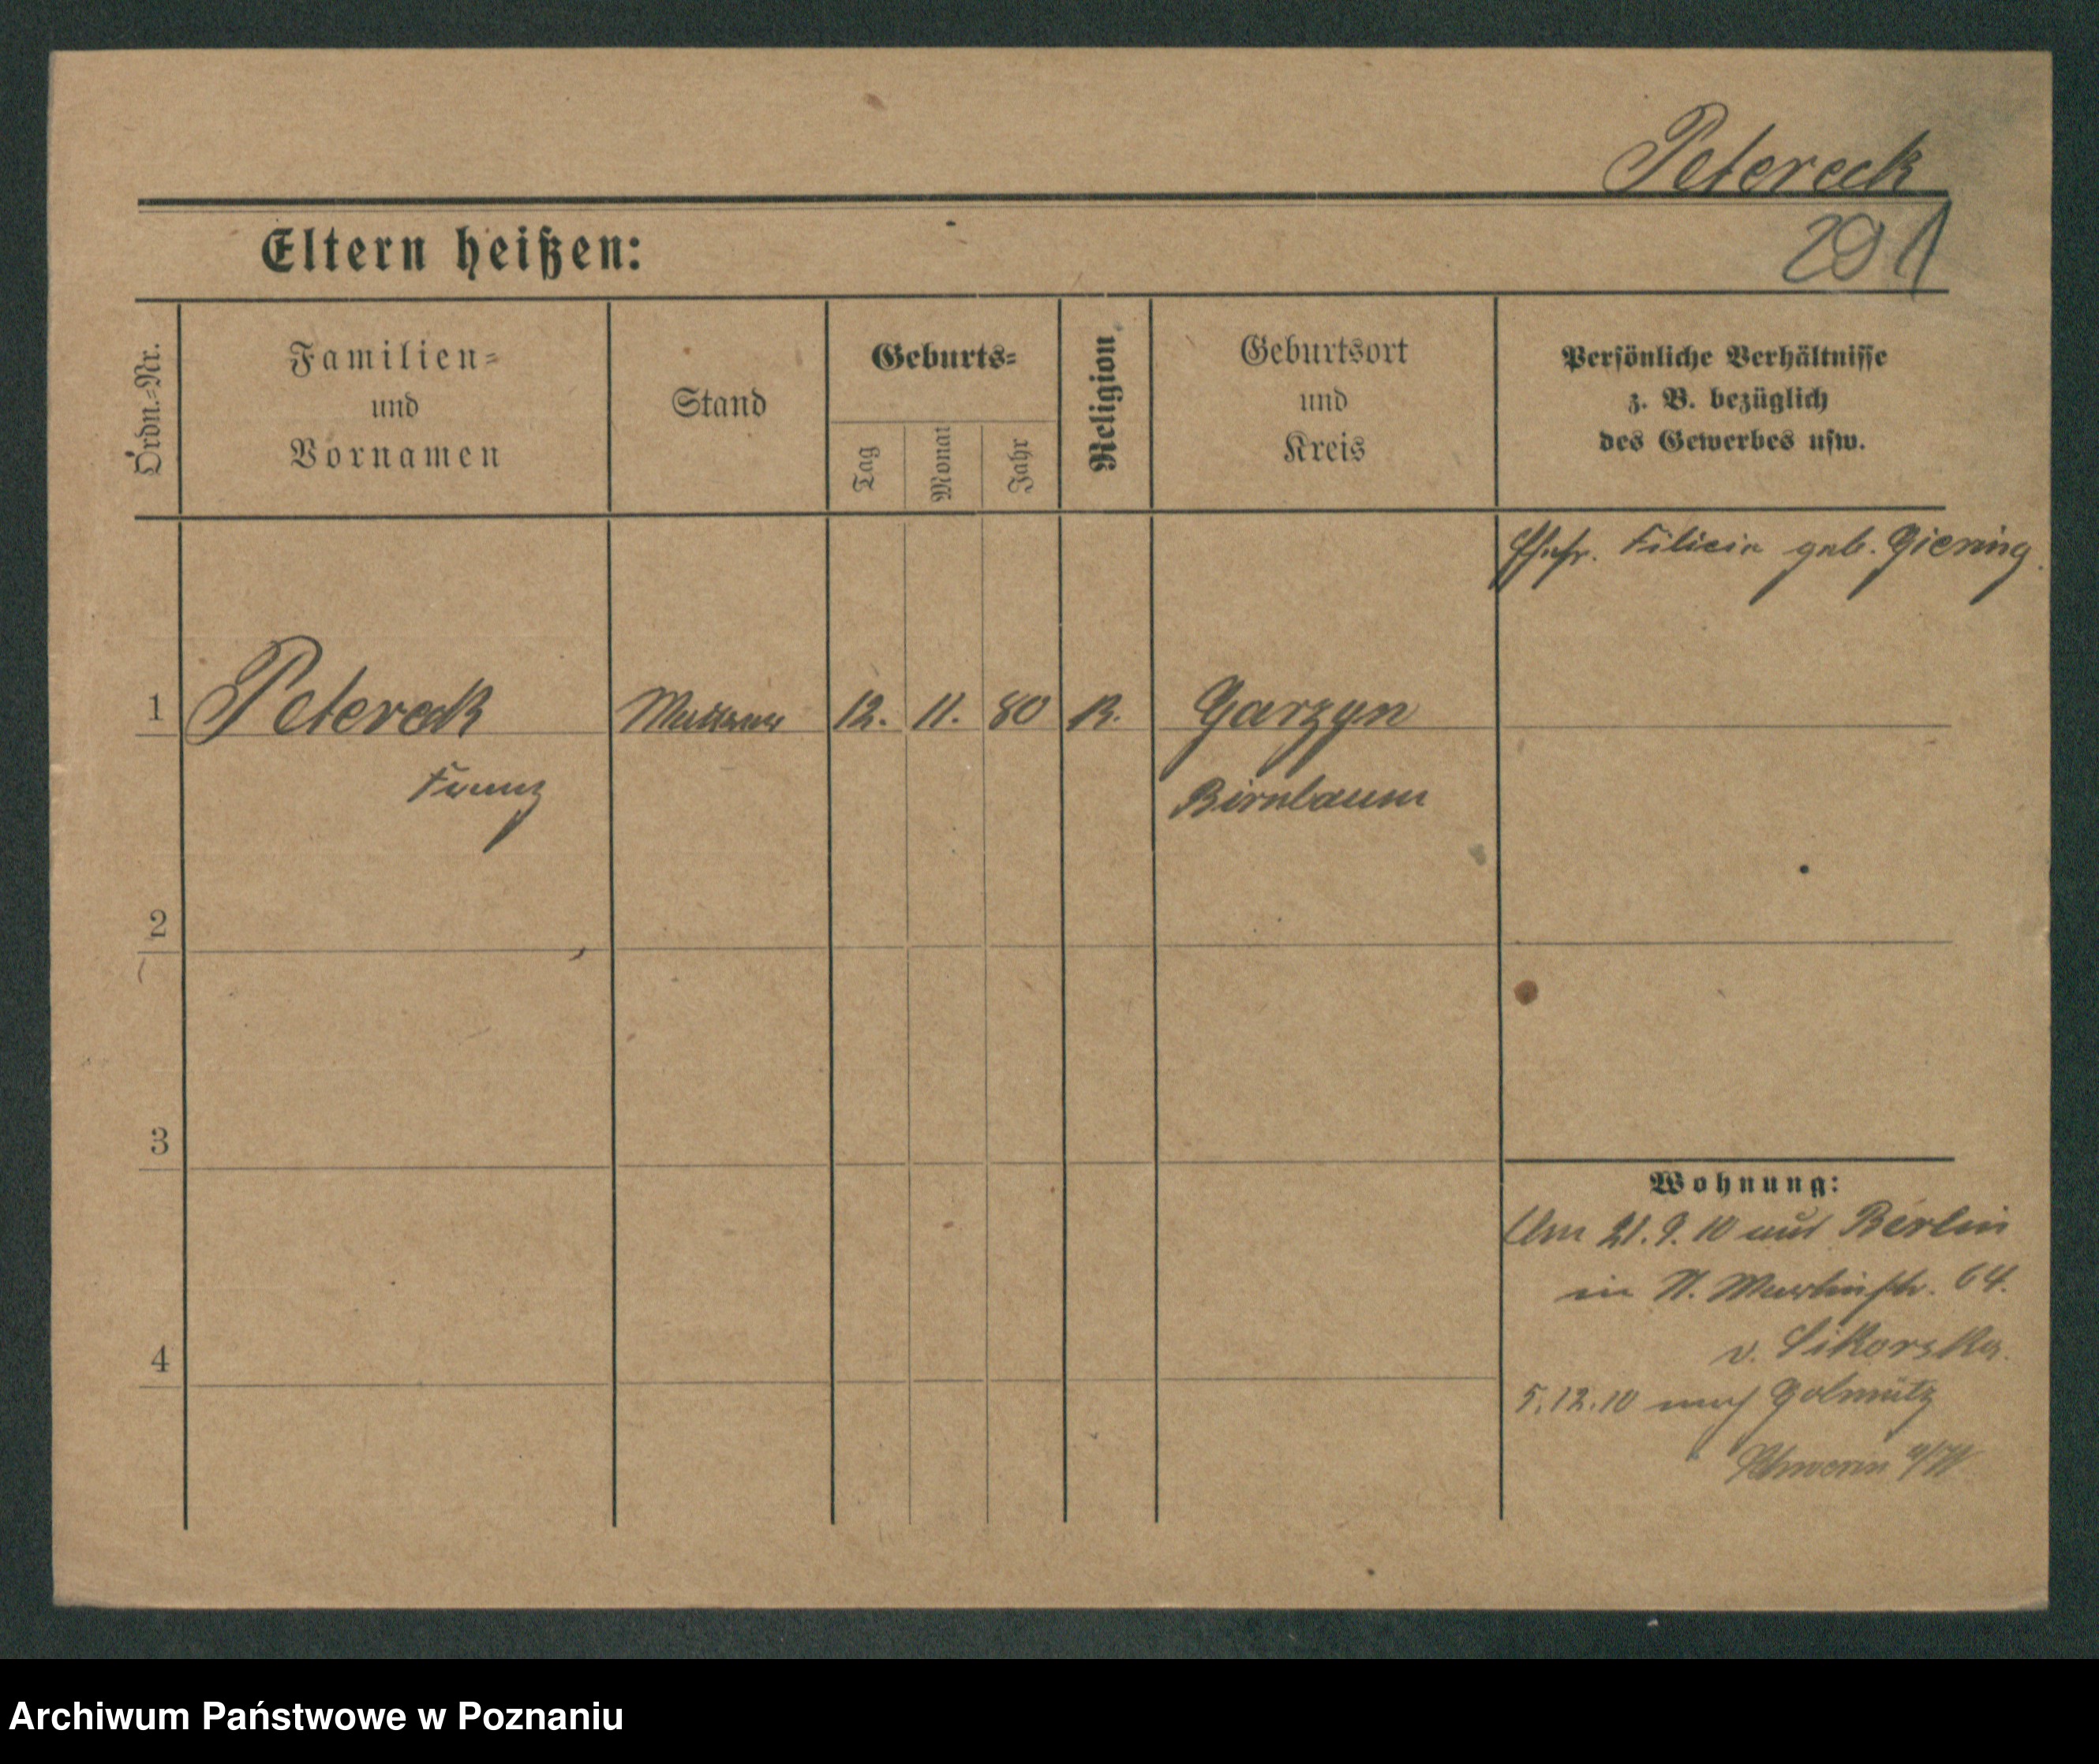 Petereck
291
Eltern heißen:
Ordn.=Nr.
Familien=
und
Vornamen
Stand
Geburts=
Tag
Monat
Jahr
Religion
Geburtsort
und
Kreis
Persönliche Verhältnisse
z. B. bezüglich
des Gewerbes usw.
Ehefr. Filicia geb. Giering.
1 Petereck 12. 11. 80 K. Gorzyn
Franz Birnbaum
2
3
Wohnung:
Am 21.9.10 aus Berlin
in St. Martinstr. 64.
v. Sikorska.
4
5.12.10 nach Golmütz
Schwerin a/W
Archiwum Państwowe w Poznaniu